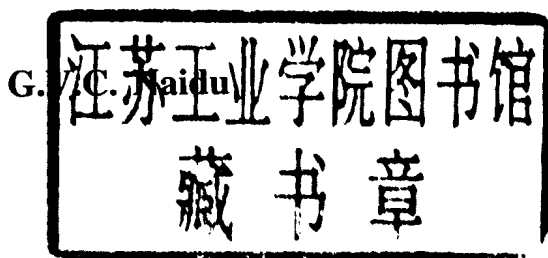 G.V.C. Naidu
江苏工业学院图书馆
藏书章